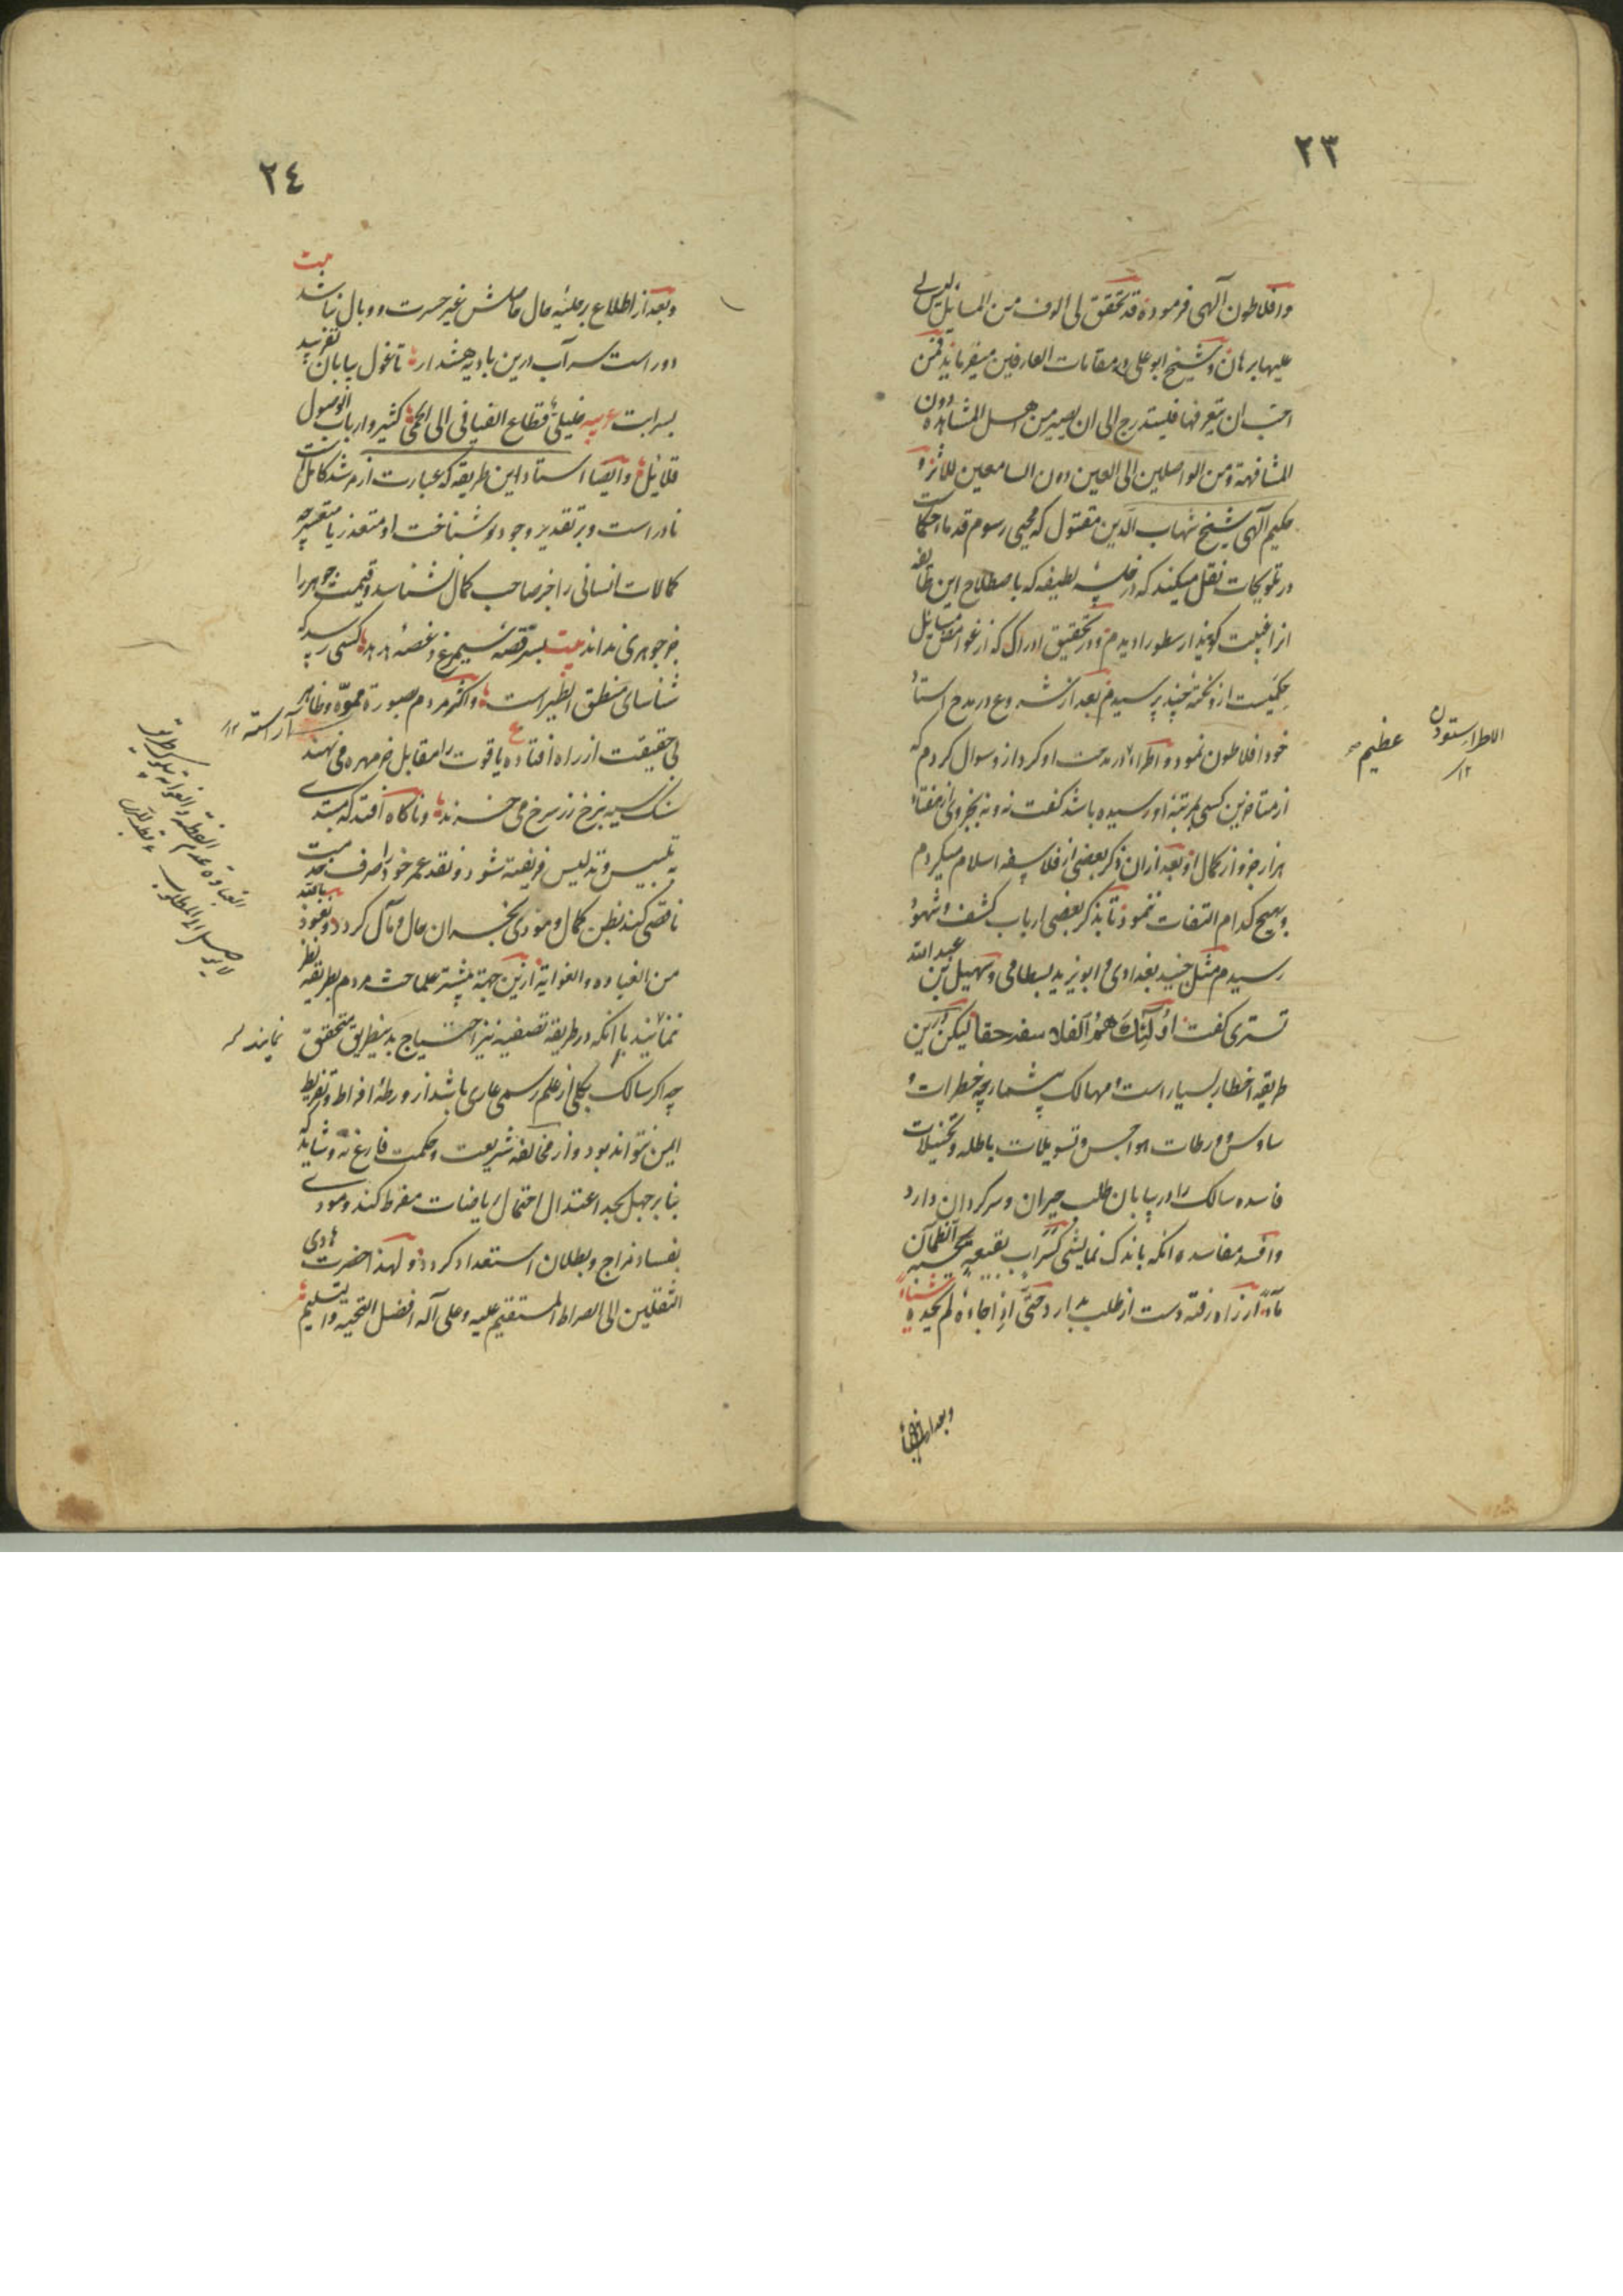 ٢٣
وافلاطون آلهی فرموده قد تحقق لی الوف من المسایل لیس لی
علیها برهان و شیخ ابو علی در مقامات العارفین میفرماید فمن
احب ان یتعرفها فلیتدرج الی ان یصیر من اهل المشاهده دون
المشافهة و من الواصلین الی العین دون السامعین للاثر و
حکیم آلهی شیخ شهاب الدین مقتول که محیی رسوم قدماء حکماست
در تلویحات نقل میکند که در خلسه لطیفه که باصطلاح این طایفه
انرا غیبت کویند ارسطو را دیدم و در تحقیق ادراک که از غوامض مسایل
حکمیست ازو نکته چند پرسیدم بعد از ان شروع در مدح استاد
خود افلاطون نمود و اطراء در مدحت او کرد ازو سوال کردم که
از متاخرین کسی بمرتبه او رسیده باشد کفت نه و نه بجزوی از هفتاد
هزار جزو از کمال او بعد ازان ذکر بعضی از فلاسفه اسلام میکردم
و بهیچ کدام التفات ننمود تا بذکر بعضی ارباب کشف و شهود
رسیدم مثل جنید بغدادی و ابو یزید بسطامی و سهیل بن عبد الله
تستری کفت اولئک هم الفلاسفه حقا لیکن درین
طریقه اخطار بسیار است و مهالک بیشمار چه خطرات و
ساوس و ورطات هواجس و تسویلات باطله و تخیلات
فاسده سالک را در بیابان طلب حیران و سرکردان دارد
وافسد مفاسده انکه باندک نمایشی کسراب بقیعه یحسبه الظمآن
مآء از راه رفته دست از طلب بدارد حتی اذا جاءه لم یجده شیئاً
وبعد از اطلاع
الاطراء ستودن
١٢
عظیم
٢٤
وبعد از اطلاع بر جلیه حال حاصلش غیر حسرت و وبال نباشد بیت
دور است سر آب ازین بادیه هشدار تا غول بیابان نفریبد
بسرابت عربیه خلیلی قطاع الفیافی الی الحمی کثیر وارباب الوصول
قلایل و ایضا استاد این طریقه که عبارت از مرشد کامل است
نادر است و بر تقدیر وجود شناخت او متعذر یا متعسر چه
کمالات انسانی را جز صاحب کمال نشناسد و قیمت جوهر را
جز جوهری نداند بیت قصه سیمرغ و غصه هدهد کسی رسد که
شناسای منطق الطیر است و اکثر مردم بصورة مموه و ظاهر
آراسته ١٢
بی حقیقت از راه افتاده یاقوت را مقابل خر مهره می نهند
سنک سیه بنرخ زر سرخ می خرند و ناکاه افتد که مبتدی
به تلبیس و تدلیس فریفته شود و نقد عمر خود را صرف خدمت
ناقصی کند بظن کمال و مودی بخسران حال و مآل کردد و نعوذ بالله
من الغباوه والغوایة ازین جهة بیشتر علما حث مردم بطریقه نظر
نمایند
نمائیند با انکه در طریقه تصفیه نیز احتیاج بدینطریق متحقق
چه اکر سالک بکلی از علم رسمی عاری باشد از ورطه افراط و تفریط
ایمن نتواند بود و از مخالفه شریعت و حکمت فارغ نه و شاید که
بنا بر جهل بحد اعتدال احتمال ریاضات مفرط کند و مودی
بفساد مزاج و بطلان استعداد کردد و لهذا حضرت هادی
الثقلین الی الصراط المستقیم علیه و علی آله افضل التحیه والتسلیم